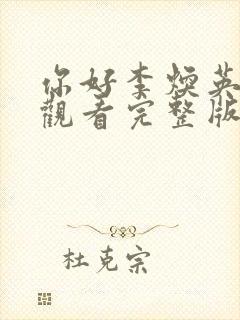 你好李煥英
觀看完整版
杜克宗